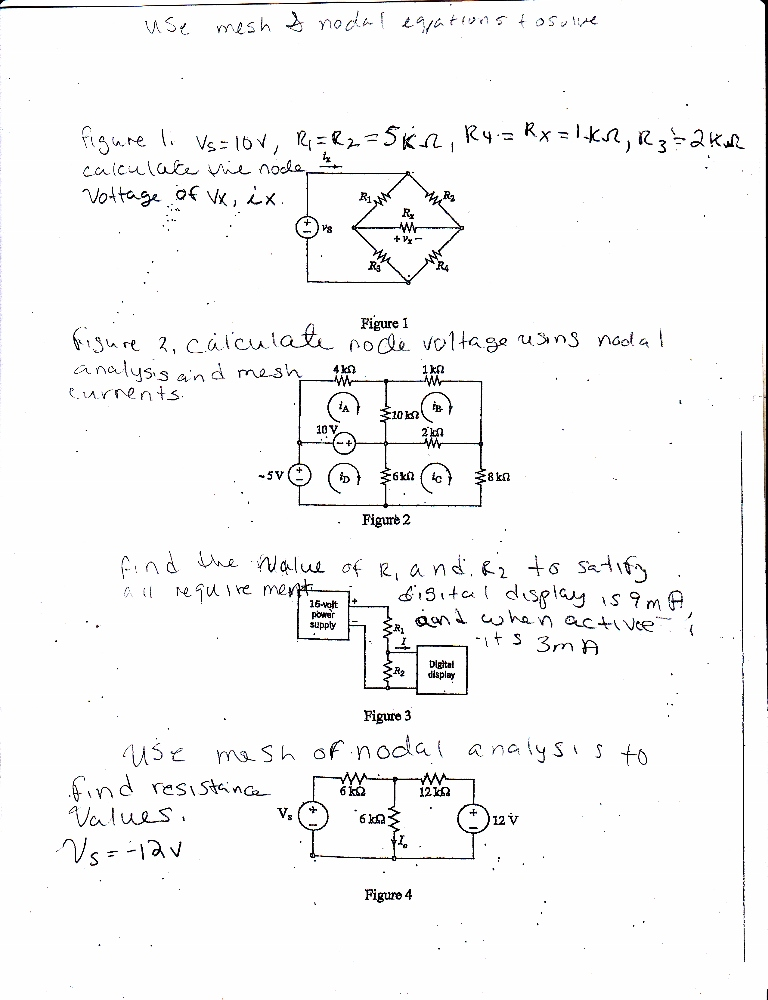 USE mesh & nodal eqations to solve
figure 1. Vs = 10V, R1 = R2 = 5KΩ, R4 = Rx = 1KΩ, R3 = 2KΩ
calculate the node
Voltage of Vx, ix.
ix
R1
R2
Rx
+ vx −
+
−
vs
R3
R4
Figure 1
figure 2, calculate node voltage using nodal
analysis and mesh
currents.
4 kΩ
1 kΩ
iA
10 kΩ
iB
10 V
− +
2 kΩ
~5V
+
−
iD
6 kΩ
iC
8 kΩ
Figure 2
find the Value of R1 and R2 to satisfy
all requirement
digital display is 9mA,
and when active
its 3mA
16-volt
power
supply
+
−
R1
I
R2
Digital
display
Figure 3
USE mesh of nodal analysis to
find resistance
Values.
Vs = -12V
6 kΩ
12 kΩ
Vs
+
−
6 kΩ
Io
+
−
12 V
Figure 4